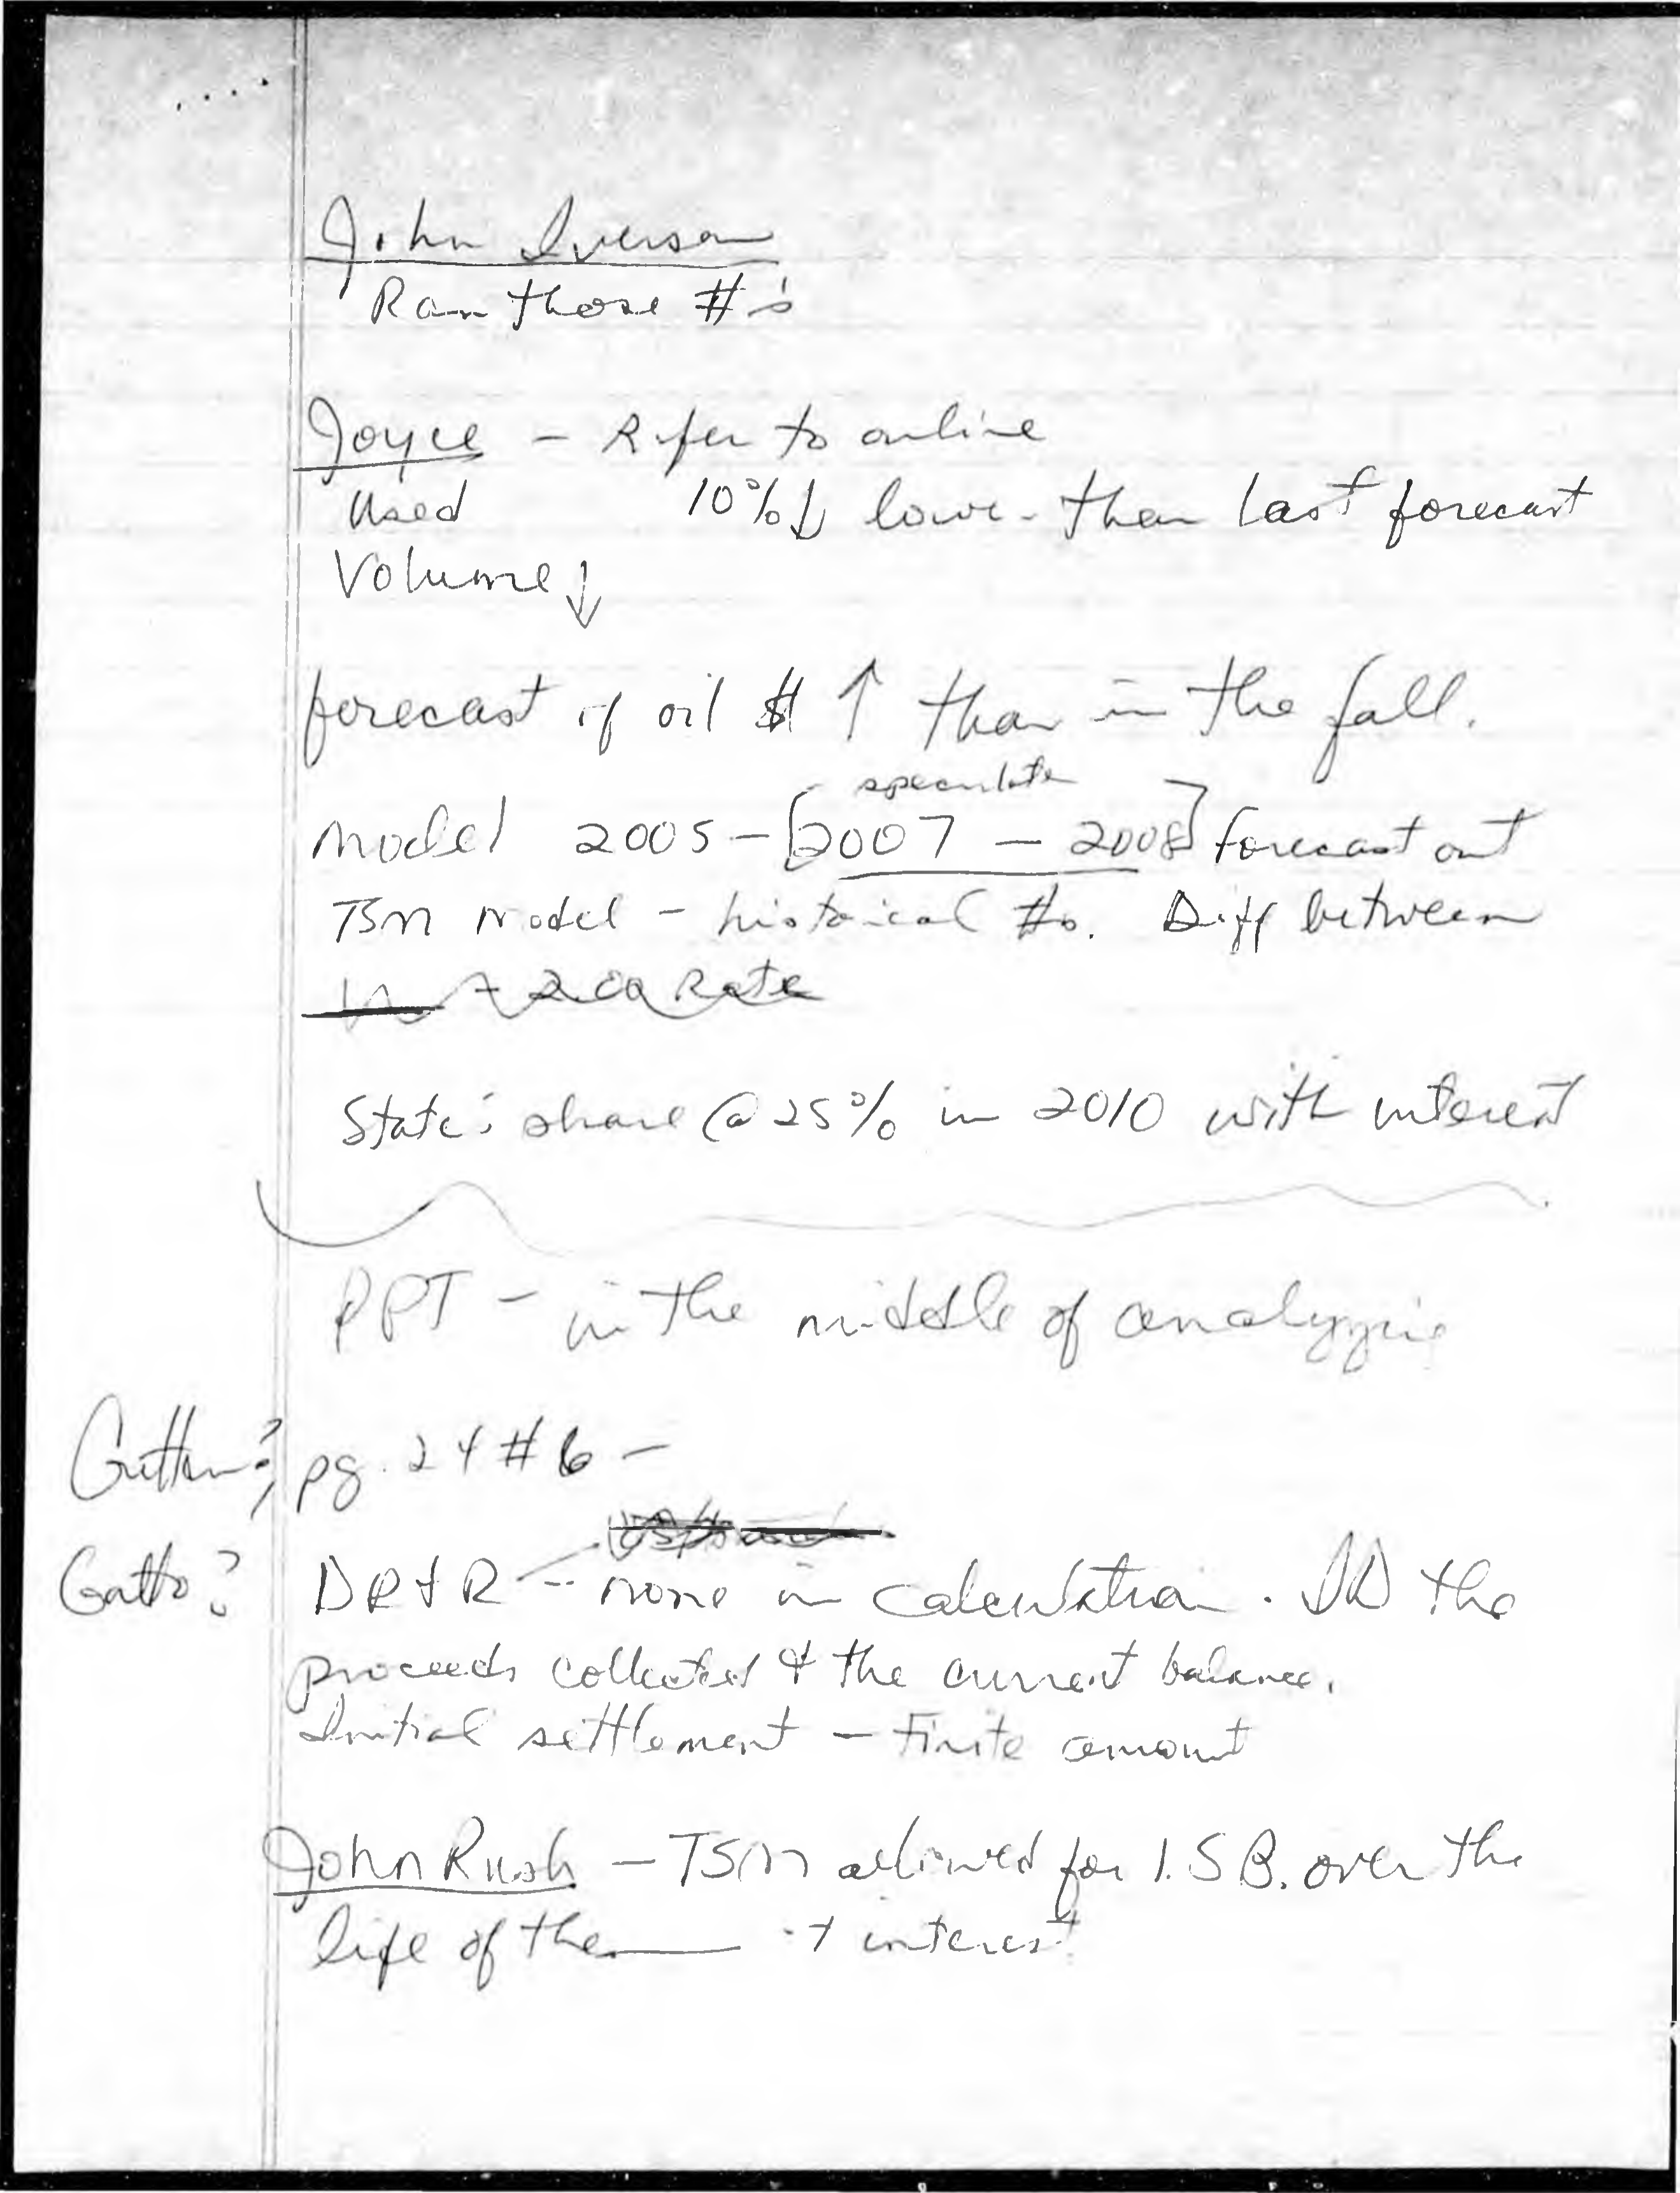 John Iverson
Ran those #'s
Joyce - Refer to online
Used 10% ↓ lower than last forecast
Volume ↓
forecast of oil $ ↑ than in the fall.
speculate
Model 2005 - [2007 - 2008] forecast out
TSM Model - historical #s. Diff between
Rate
State's share @ 25% in 2010 with interest
PPT - in the middle of analyzing
pg. 24 #6 -
Gatto? DR&R -- none in calculation. the
proceeds collected & the current balance.
Initial settlement - Finite amount
John Rush - TSM allowed for 1.5 B. over the
life of the ___ + interest